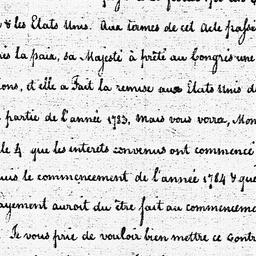 & les Etats Unis. Aux termes de cet Acte passé
la paix, sa Majesté à prêté au Congrès une
et elle a Fait la remise aux Etats Unis d
partie de l'année 1783, Mais vous verrez, Mon
le 4. que les interets convenus ont commencé
uis le commencement de l'année 1784 & que
ayement auroit du être fait au commenceme
Je vous prie de vouloir bien mettre ce Contr